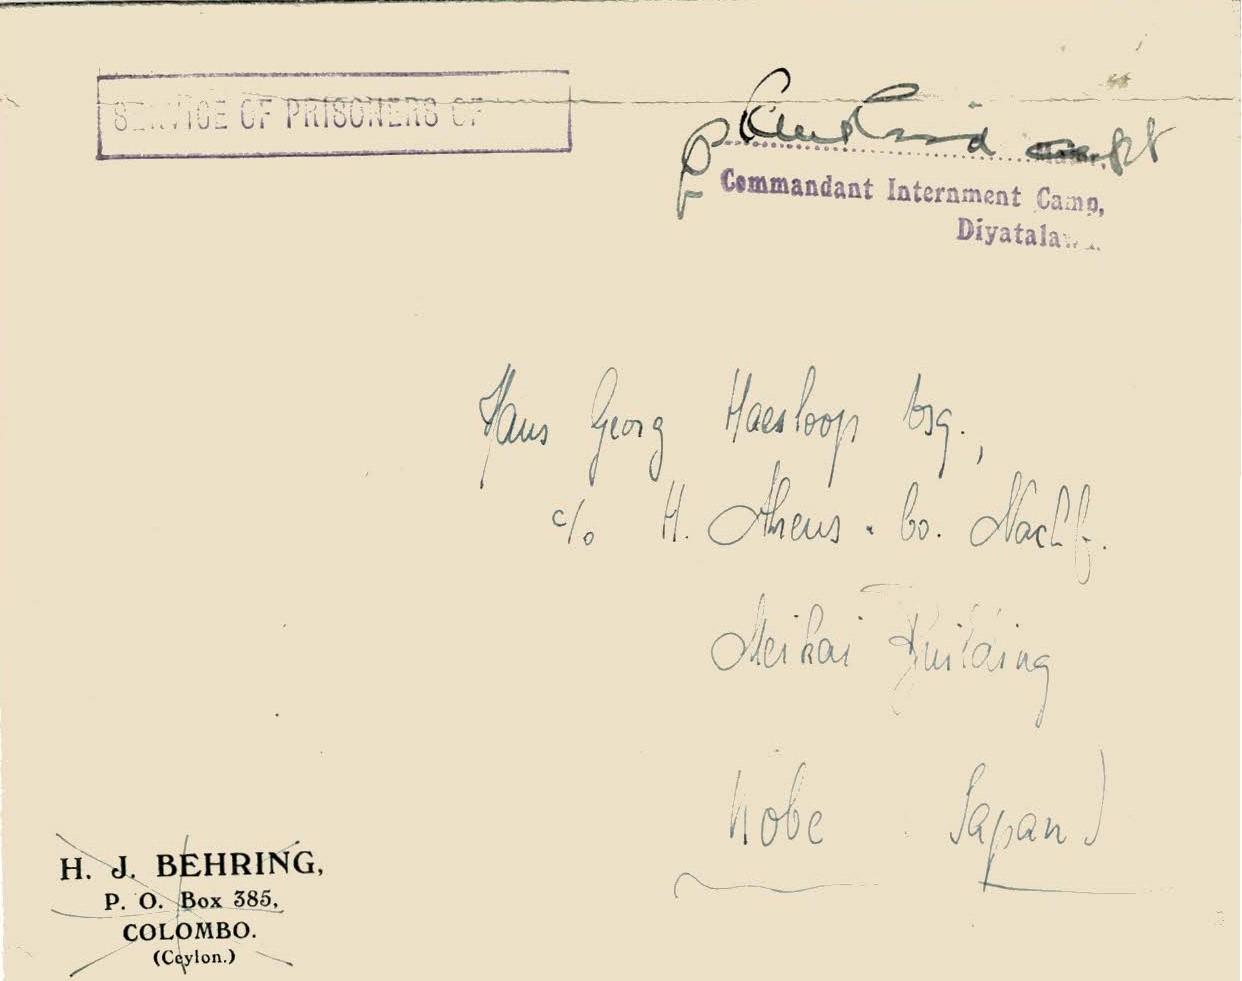 SERVICE OF PRISONERS OF
Commandant Internment Camp,
Diyatala
Hans Georg Haesloop Esq.,
c/o H. Ahrens & Co. Nachf.
Meikai Building
Kobe Japan
H. J. BEHRING,
P. O. Box 385,
COLOMBO.
(Ceylon.)